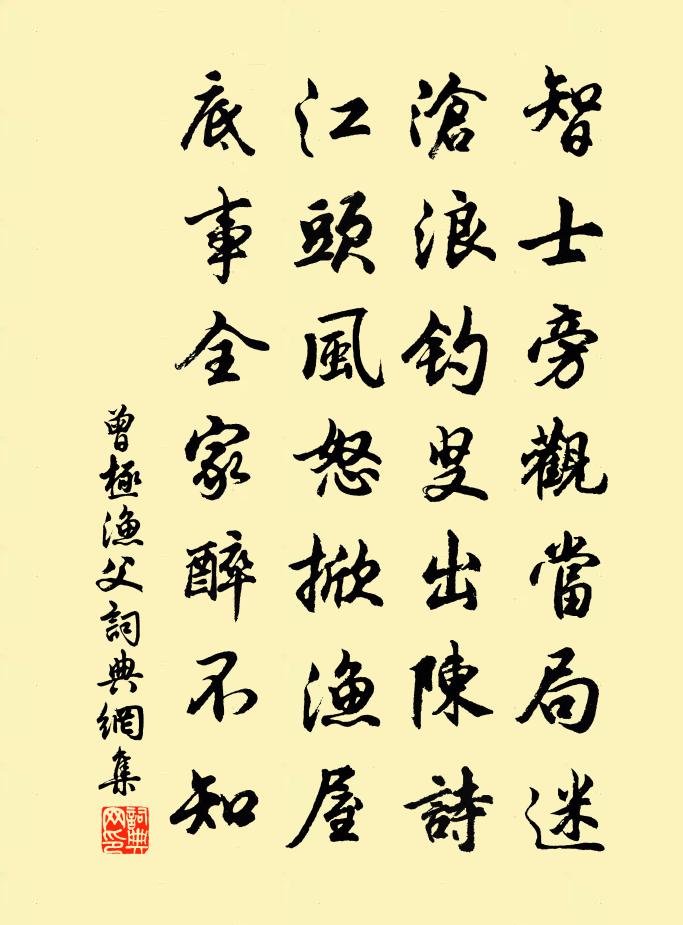 智士旁觀當局迷
滄浪釣叟出陳詩
江頭風怒掀漁屋
底事全家醉不知
曾極漁父詞典網集
詞典網印